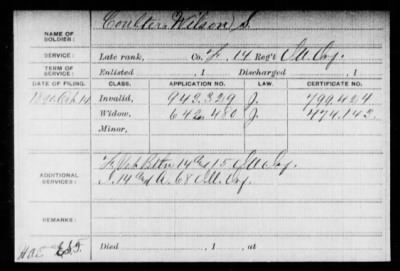 Coulter, Wilson S.
NAME OF
SOLDIER:
SERVICE: Late rank, Co. F, 14 Reg't Ill Cav.
TERM OF
SERVICE: Enlisted , 1 Discharged , 1
DATE OF FILING. CLASS. APPLICATION NO. LAW. CERTIFICATE NO.
1890 14 Invalid, 943.329 J. 799.424
Widow, 642.480 J. 474.143
Minor,
ADDITIONAL
SERVICES:
F, 14 & 15 Ill Inf.
14 A. 68 Ill. Inf.
REMARKS:
Died , 1 , at